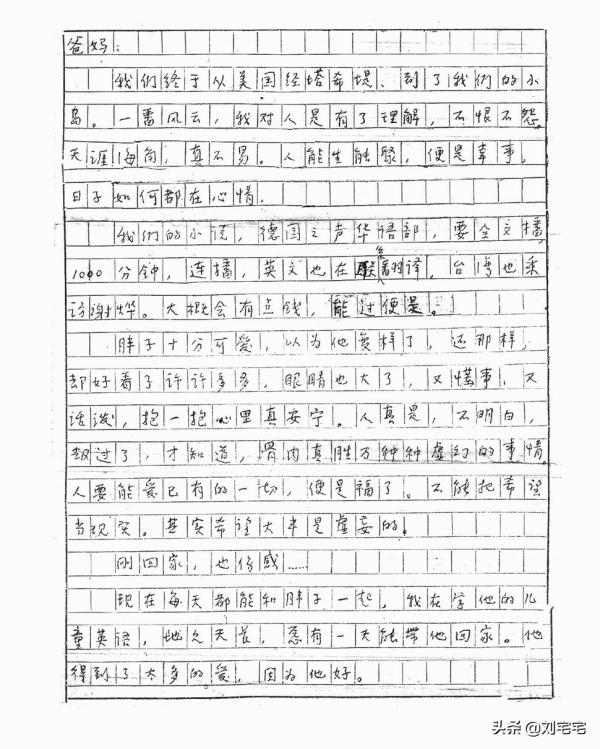 爸妈：
我们终于从美国经塔希堤、到了我们的小
岛。一番风云，我对人是有了理解，不恨不怨。
天涯海角，真不易。人能生能聚，便是幸事。
日子如何都在心情。
我们的小说，德国之声华语部，要全文播，
1000分钟，连播，英文也在联系翻译，台湾也采
访谢烨。大概会有点钱，能过便是。
胖子十分可爱，以为他变样了，还那样，
却好看了许许多多，眼睛也大了，又懂事，又
活泼，抱一抱心里真安宁。人真是，不明白，
飘过了，才知道，骨肉真胜万种种虚幻的事情。
人要能爱已有的一切，便是福了。不能把希望
当现实。其实希望大半是虚妄的。
刚回家，也伤感……
现在每天都能和胖子一起，我在学他的儿
童英语，地久天长，忽有一天能带他回家。他
得到了太多的爱，因为他好。
头条@刘宅宅